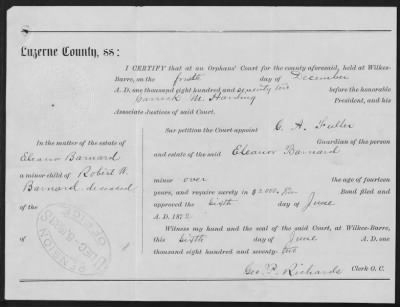 Luzerne County, ss:
I CERTIFY that at an Orphans' Court for the county aforesaid, held at Wilkes-
Barre, on the fourth day of December
A. D. one thousand eight hundred and seventy two before the honorable
Garrick M. Harding President, and his
Associate Justices of said Court.
In the matter of the estate of
Eleanor Barnard
a minor child of Robert W.
Barnard deceased
of the
Sur petition the Court appoint C. A. Fuller
Guardian of the person
and estate of the said Eleanor Barnard
minor over the age of fourteen
years, and require surety in $2,000. Bond filed and
approved the Sixth day of June
A. D. 1872
Witness my hand and the seal of the said Court, at Wilkes-Barre,
this Sixth day of June A. D. one
thousand eight hundred and seventy- two
Geo. P. Richards Clerk O. C.
PENSION
OFFICE
DEC